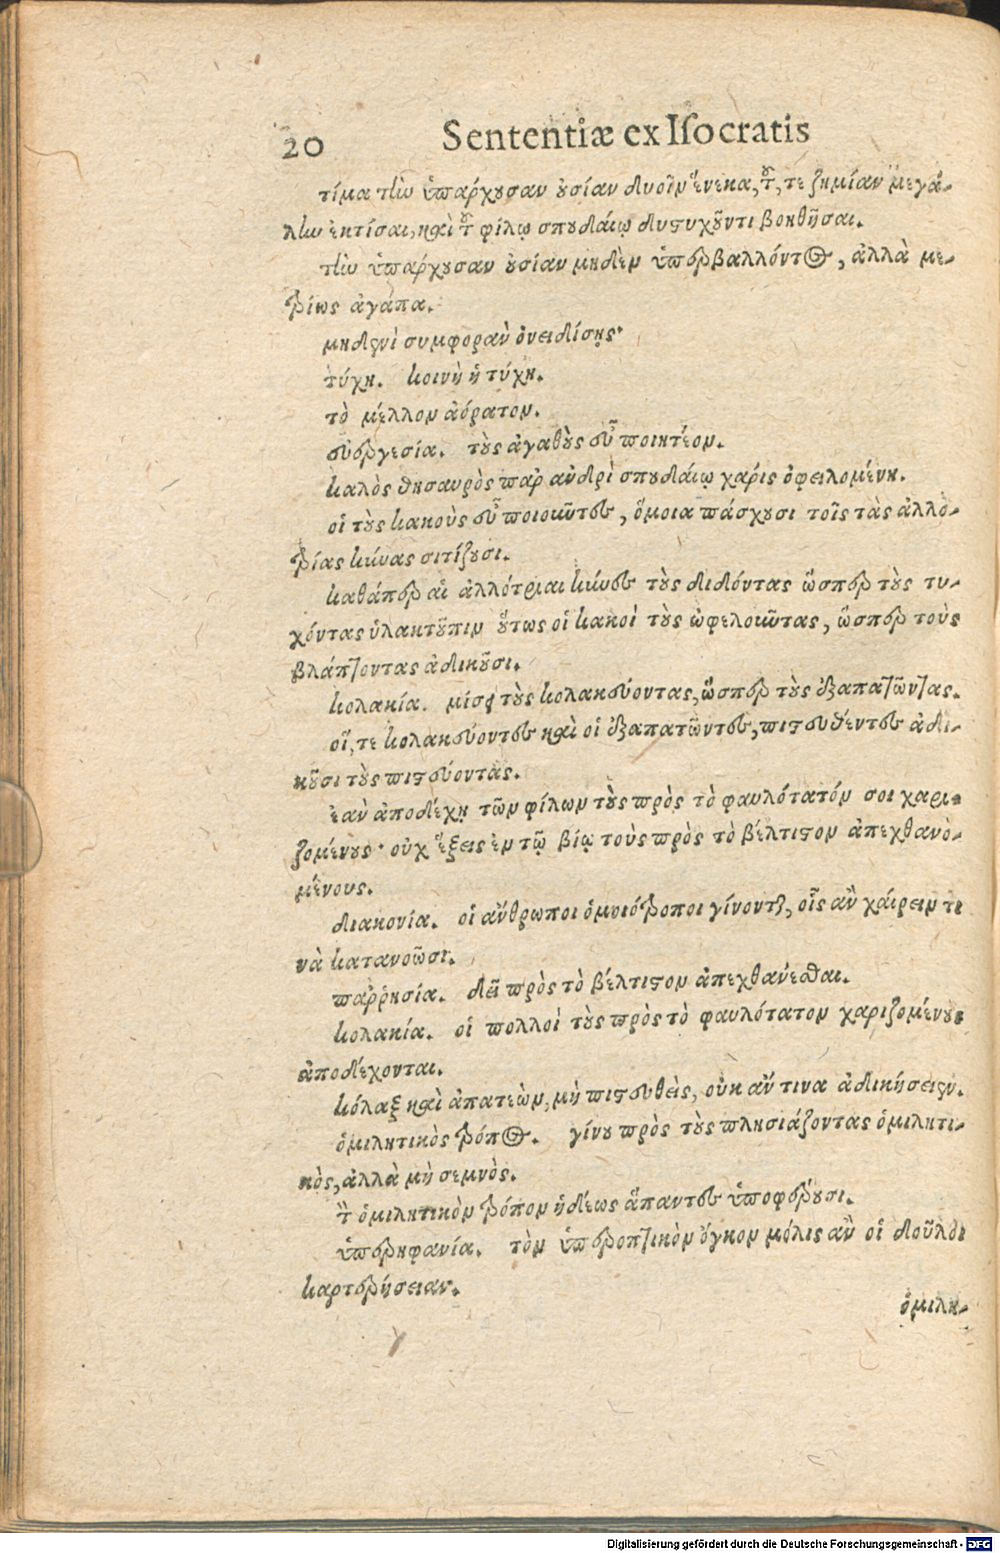 20 Sententiæ ex Iſocratis
τίμα τὴν ὑπάρχουσαν οὐσίαν δυοῖν ἕνεκα, τοῦ, τε ζημίαν μεγά-
λην ἐκτίσαι, καὶ τοῦ φίλῳ σπουδαίῳ δυστυχοῦντι βοηθῆσαι.
τὴν ὑπάρχουσαν οὐσίαν μηδὲν ὑπερβαλλόντως, ἀλλὰ με-
τρίως ἀγάπα.
μηδενὶ συμφορὰν ὀνειδίσῃς·
τύχη. κοινὴ ἡ τύχη.
τὸ μέλλον ἀόρατον.
εὐεργεσία. τοὺς ἀγαθοὺς εὖ ποιητέον.
καλὸς θησαυρὸς παρ ἀνδρὶ σπουδαίῳ χάρις ὀφειλομένη.
οἱ τοὺς κακοὺς εὖ ποιοῦντες, ὅμοια πάσχουσι τοῖς τὰς ἀλλο-
τρίας κύνας σιτίζουσι.
καθάπερ αἱ ἀλλότριαι κύνες τοὺς διδόντας ὥσπερ τοὺς τυ-
χόντας ὑλακτοῦσιν οὕτως οἱ κακοὶ τοὺς ὠφελοῦντας, ὥσπερ τοὺς
βλάπτοντας ἀδικοῦσι.
κολακία. μίσει τοὺς κολακεύοντας, ὥσπερ τοὺς ἐξαπατῶντας.
οἵ, τε κολακεύοντες καὶ οἱ ἐξαπατῶντες, πιστευθέντες ἀδι-
κοῦσι τοὺς πιστεύοντας.
ἐὰν ἀποδέχῃ τῶν φίλων τοὺς πρὸς τὸ φαυλότατόν σοι χαρι-
ζομένους· οὐχ ἕξεις ἐν τῷ βίῳ τοὺς πρὸς τὸ βέλτιστον ἀπεχθανο-
μένους.
διακονία. οἱ ἄνθρωποι ὁμοιότροποι γίνονται, οἷς ἂν χαίρειν τι
νὰ κατανοῶσι.
παῤῥησία. δεῖ πρὸς τὸ βέλτιστον ἀπεχθάνεσθαι.
κολακία. οἱ πολλοὶ τοὺς πρὸς τὸ φαυλότατον χαριζομένους
ἀποδέχονται.
κόλαξ καὶ ἀπατεὼν, μὴ πιστευθεὶς, οὐκ ἄν τινα ἀδικήσειεν.
ὁμιλητικὸς τρόπος. γίνου πρὸς τοὺς πλησιάζοντας ὁμιλητι-
κὸς, ἀλλὰ μὴ σεμνὸς.
τὸν ὁμιλητικὸν τρόπον ἡδέως ἅπαντες ὑποφέρουσι.
ὑπερηφανία. τὸν ὑπεροπτικὸν ὄγκον μόλις ἂν οἱ δοῦλοι
καρτερήσειαν.
ὁμιλη-
Digitalisierung gefördert durch die Deutsche Forschungsgemeinschaft - DFG